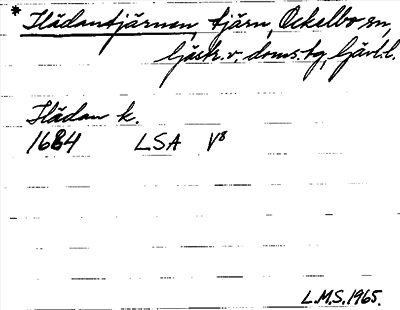 * Flädantjärnen, tjärn, Ockelbo sn,
Gästr. v. doms.tg, Gävl.l.
Flädan k.
1684 LSA V8
L.M.S. 1965.